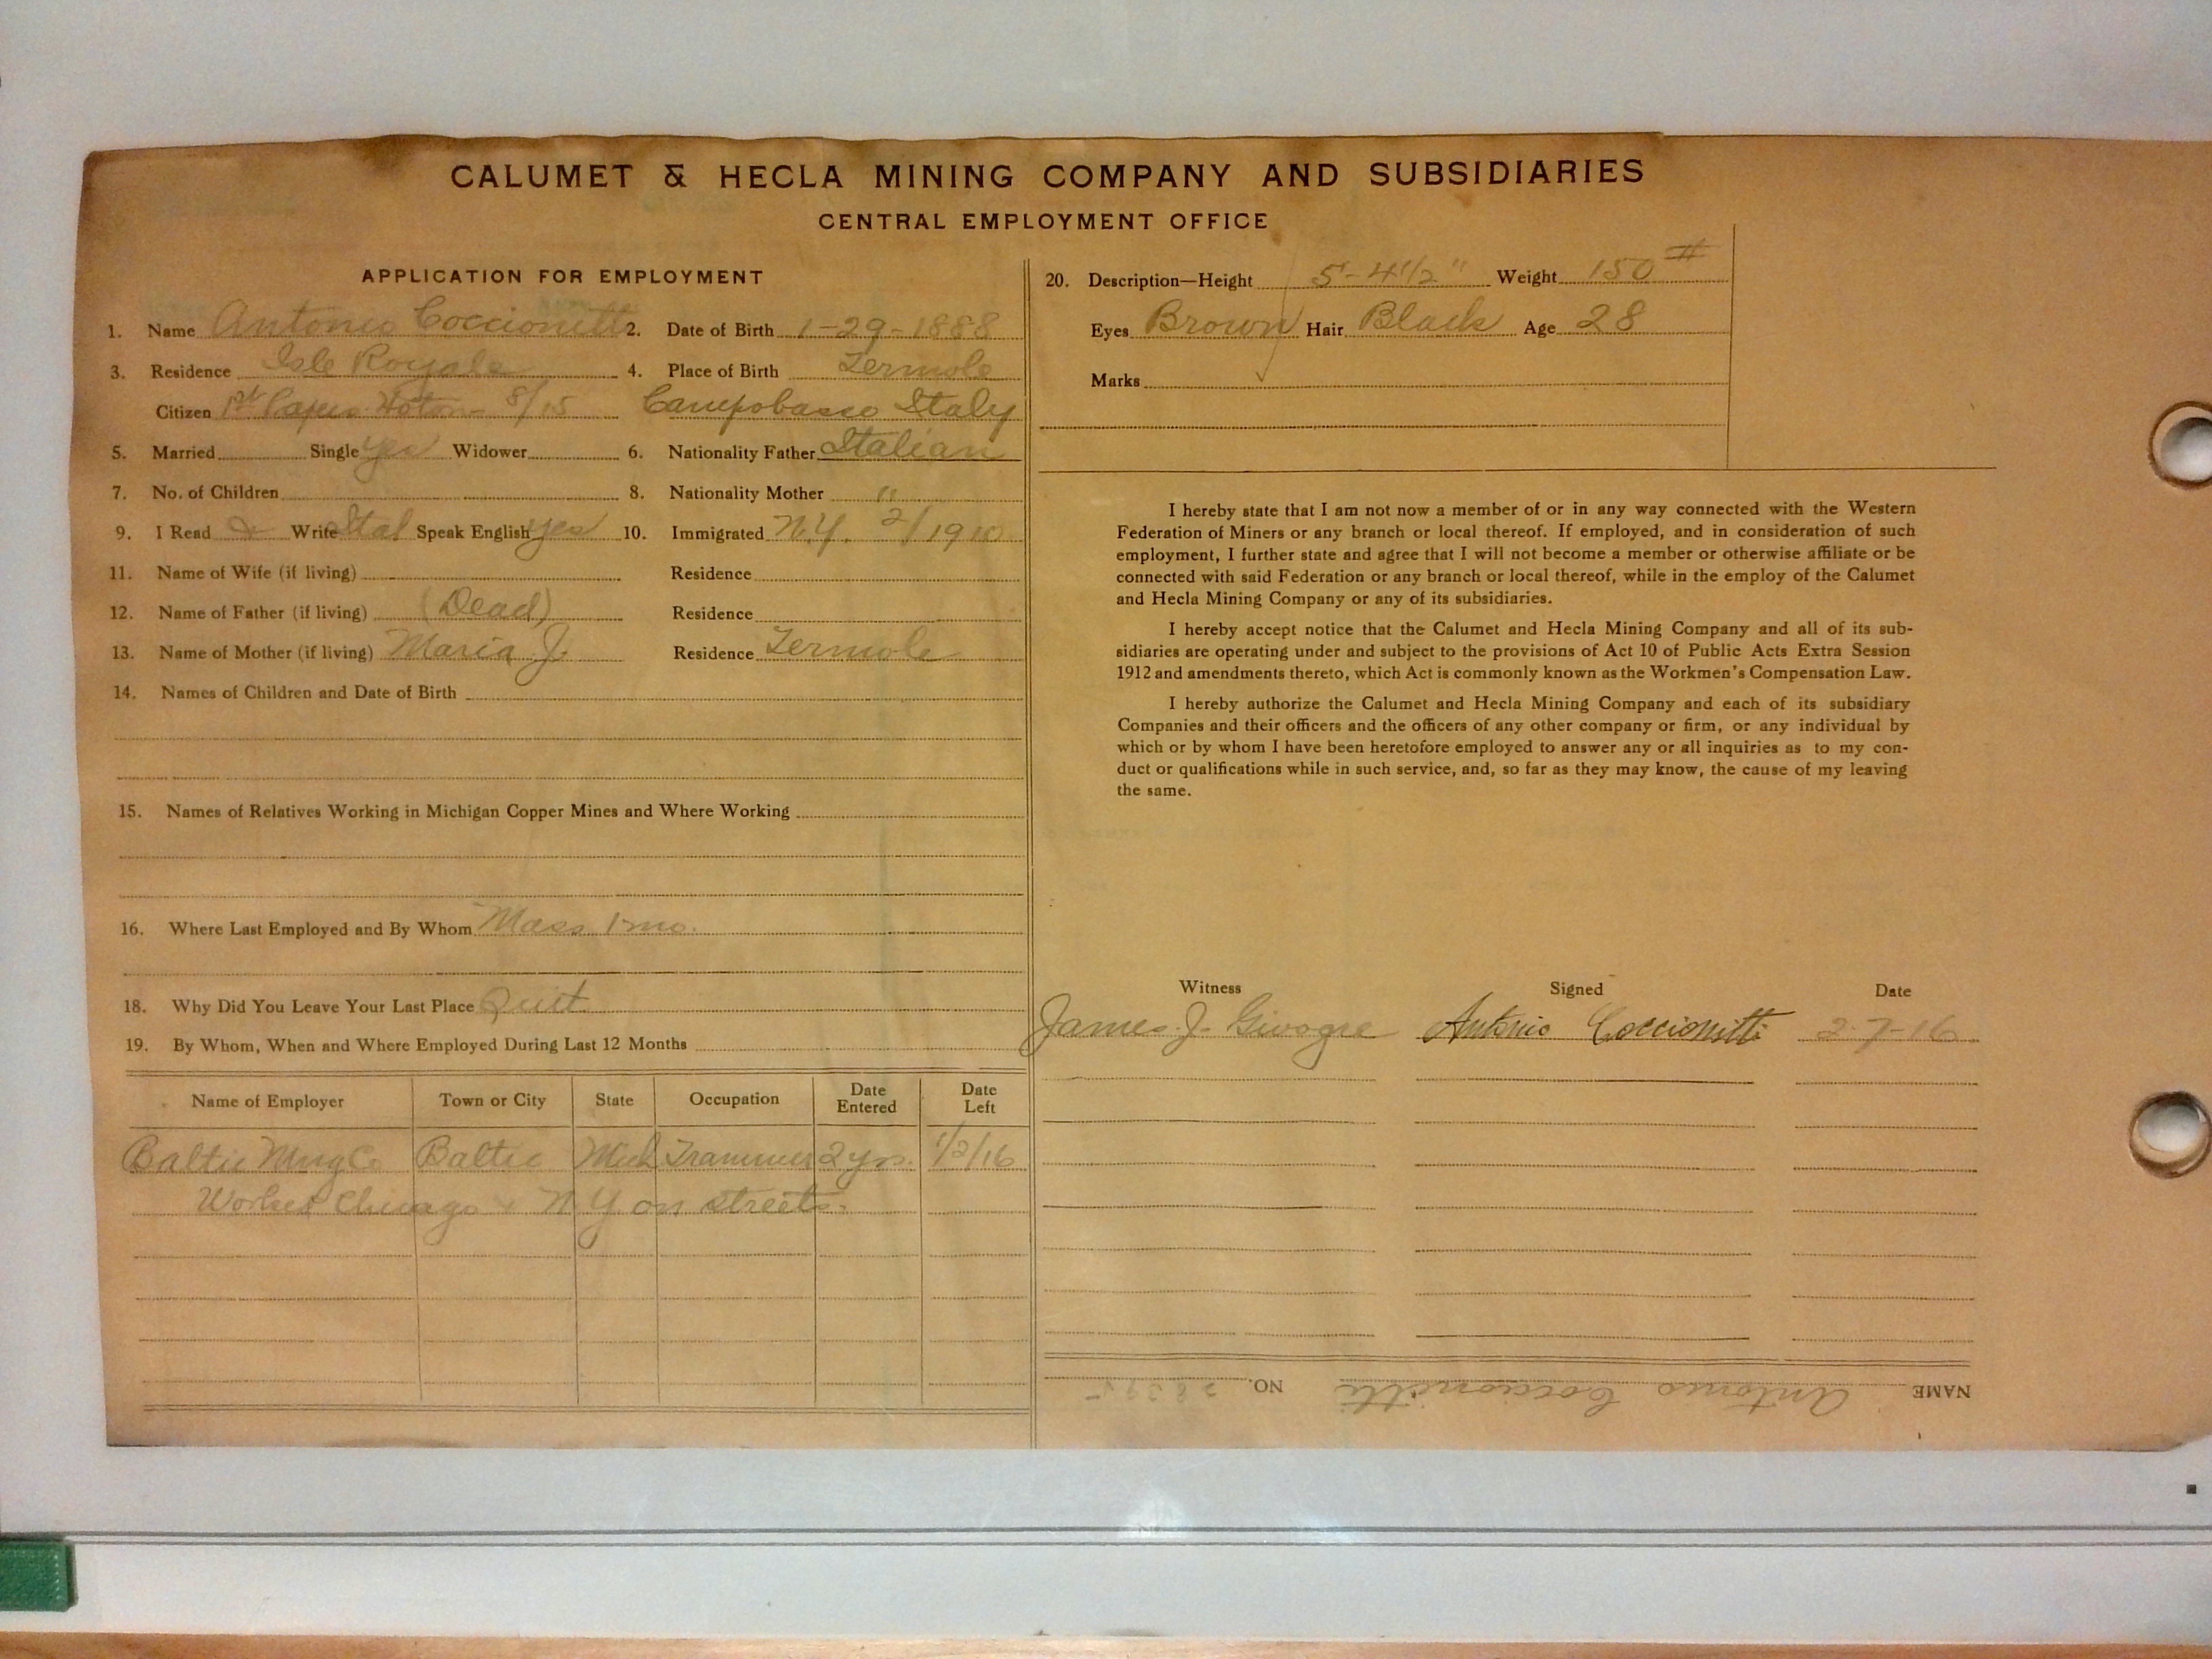 CALUMET & HECLA MINING COMPANY AND SUBSIDIARIES
CENTRAL EMPLOYMENT OFFICE
APPLICATION FOR EMPLOYMENT
1. Name Antonio Coccionitti 2. Date of Birth 1-29-1888
3. Residence Isle Royale 4. Place of Birth Termole
Citizen 1st Papers Hoton 8/15 Campobasso Italy
5. Married Single yes Widower 6. Nationality Father Italian
7. No. of Children 8. Nationality Mother "
9. I Read & Write Ital Speak English yes 10. Immigrated N.Y. 2/1910
11. Name of Wife (if living) Residence
12. Name of Father (if living) (Dead) Residence
13. Name of Mother (if living) Maria J. Residence Termole
14. Names of Children and Date of Birth
15. Names of Relatives Working in Michigan Copper Mines and Where Working
16. Where Last Employed and By Whom Mass 1 mo.
18. Why Did You Leave Your Last Place Quit
19. By Whom, When and Where Employed During Last 12 Months
Name of Employer Town or City State Occupation Date Entered Date Left
Baltic Mng Co Baltic Mich Trammer 2 yrs. 1/2/16
Worked Chicago & N.Y. on streets.
20. Description—Height 5-4 1/2" Weight 150 #
Eyes Brown Hair Black Age 28
Marks
I hereby state that I am not now a member of or in any way connected with the Western
Federation of Miners or any branch or local thereof. If employed, and in consideration of such
employment, I further state and agree that I will not become a member or otherwise affiliate or be
connected with said Federation or any branch or local thereof, while in the employ of the Calumet
and Hecla Mining Company or any of its subsidiaries.
I hereby accept notice that the Calumet and Hecla Mining Company and all of its sub-
sidiaries are operating under and subject to the provisions of Act 10 of Public Acts Extra Session
1912 and amendments thereto, which Act is commonly known as the Workmen's Compensation Law.
I hereby authorize the Calumet and Hecla Mining Company and each of its subsidiary
Companies and their officers and the officers of any other company or firm, or any individual by
which or by whom I have been heretofore employed to answer any or all inquiries as to my con-
duct or qualifications while in such service, and, so far as they may know, the cause of my leaving
the same.
Witness Signed Date
James J. Antonio Coccionitti 2-7-16
NAME Antonio Coccionitti NO.